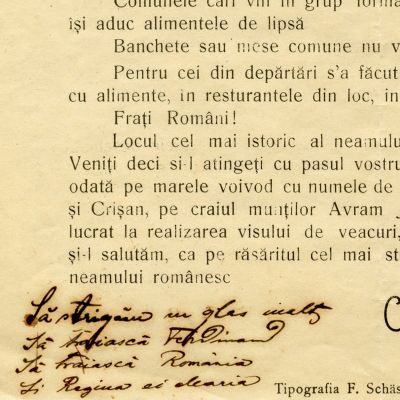 Comunele cari vin in grup forma
își aduc alimentele de lipsă
Banchete sau mese comune nu v
Pentru cei din depărtări s'a făcut
cu alimente, in resturantele din loc, in
Frați Români!
Locul cel mai istoric al neamulu
Veniți deci si-l atingeți cu pasul vostru
odată pe marele voivod cu numele de
și Crișan, pe craiul munților Avram J
lucrat la realizarea visului de veacuri,
și-l salutăm, ca pe răsăritul cel mai st
neamului românesc
Să strigăm in glas inalt
Să trăiască Ferdinand
Să trăiască România
Și Regina ei Maria
C
Tipografia F. Schäs